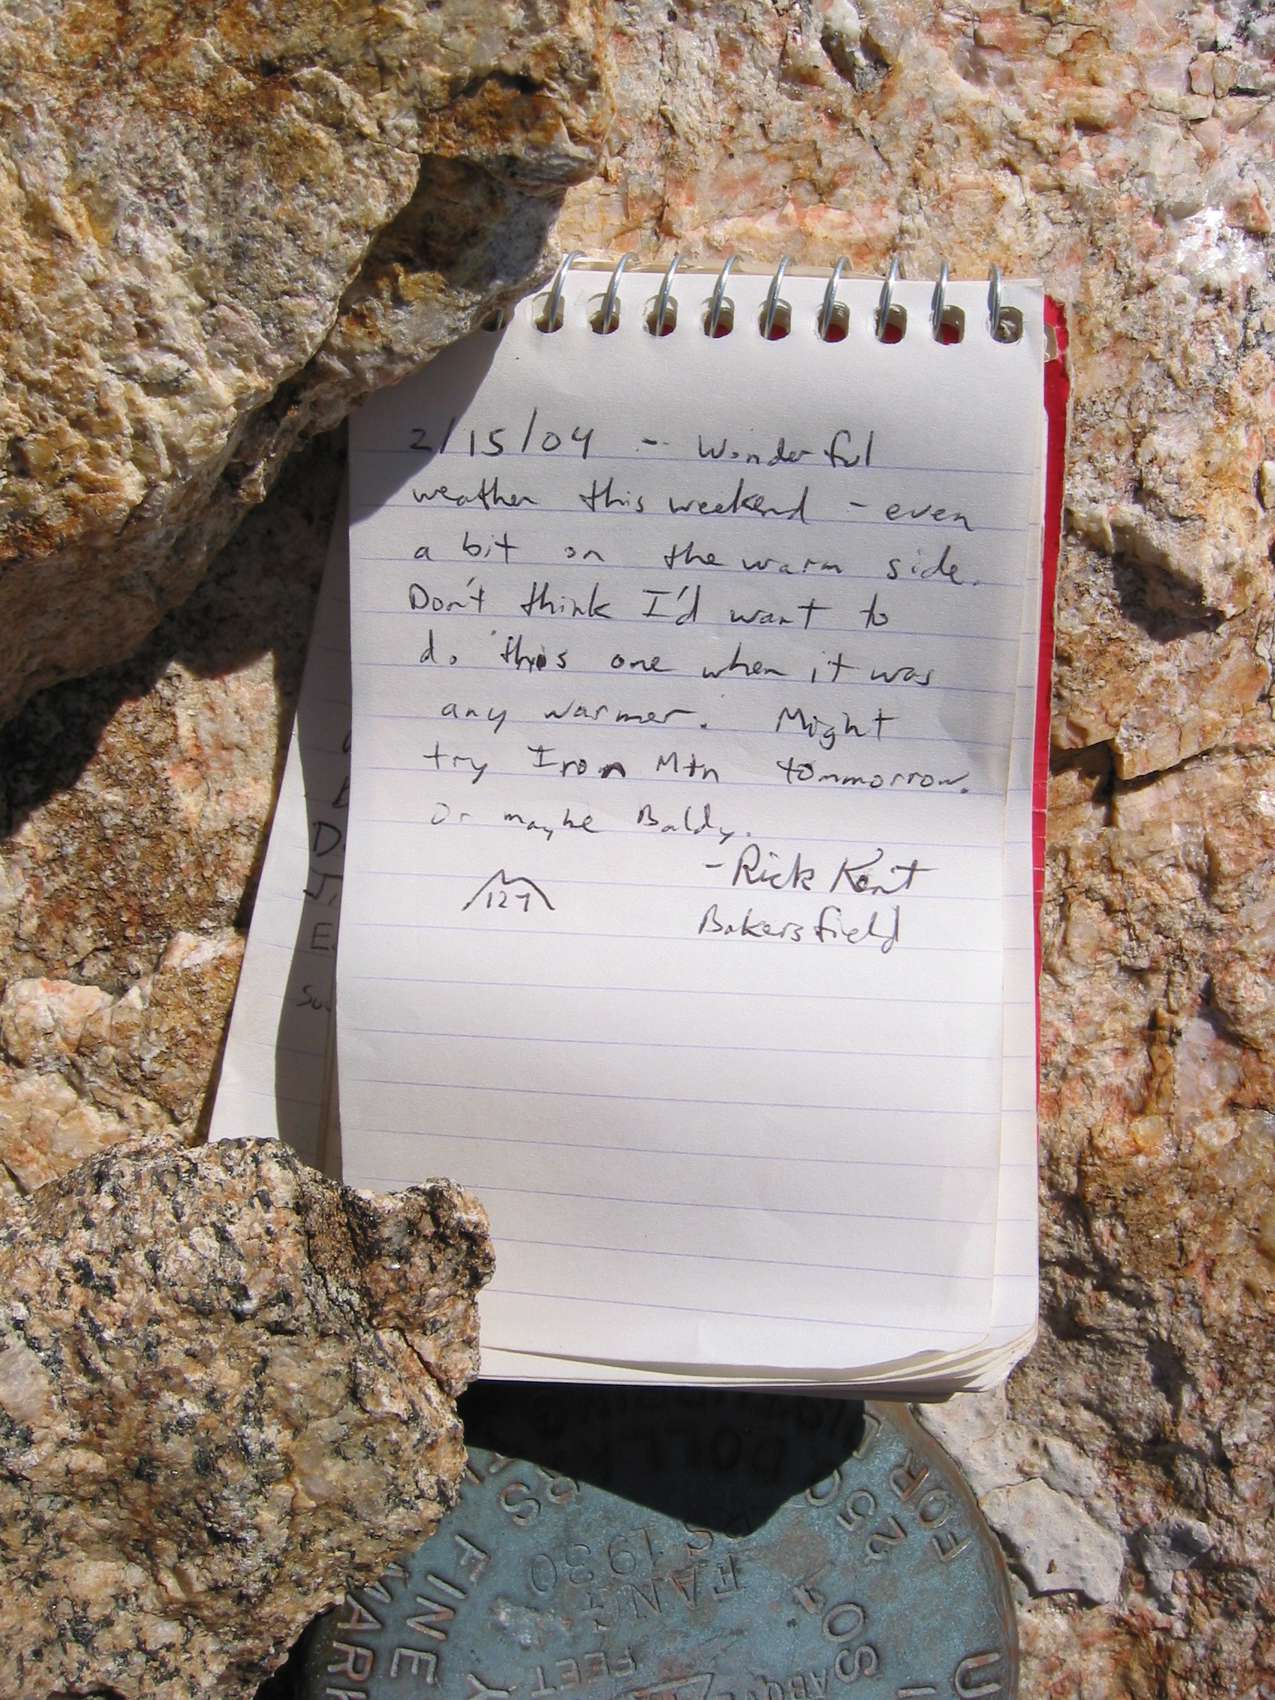 2/15/04 -- Wonderful
weather this weekend - even
a bit on the warm side.
Don't think I'd want to
do this one when it was
any warmer. Might
try Iron Mtn tommorrow.
Or maybe Baldy.
-Rick Kent
127
Bakersfield
D
E
su
DOLLARS
FOR
250
FINE
1930
FANG
MARK
FEET
ABOVE